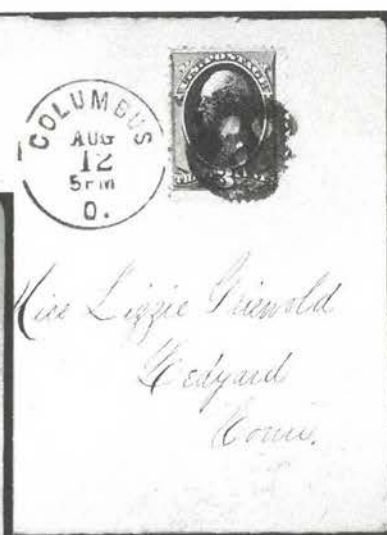 U.S. POSTAGE
COLUMBUS
AUG
12
5 PM
O.
3
Miss Lizzie Griswold
Ledyard
Conn.